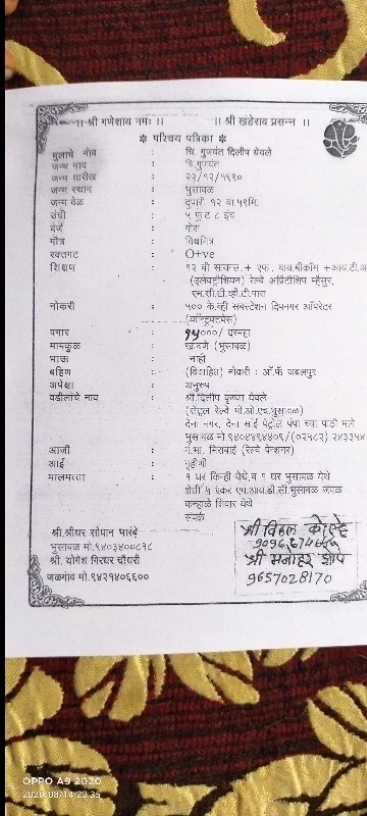 श्री गणेशाय नमः ।। ।। श्री खंडेराव प्रसन्न ।।
❋ परिचय पत्रिका ❋
मुलाचे नांव : चि. गुणवंत दिलीप येवले
जन्म नाव : चि.गुणवंत
जन्म तारीख : २२/१२/१९९०
जन्म स्थान : भुसावळ
जन्म वेळ : दुपारी १२ वा.५९मि.
उंची : ५ फुट ८ इंच
वर्ण : गोरा
गौत्र : विश्वमित्र
रक्तगट : O+ve
शिक्षण : १२ वी सायन्स + एफ. वाय.बीकॉम +आय.टी.आ
(इलेक्ट्रीशियन) रेल्वे अप्रेंटीशिप म्हैसुर,
एन.सी.टी.व्ही.टी.पास
नोकरी : ५०० के.व्ही सबस्टेशन दिपनगर ऑपरेटर
(कॉन्ट्रक्टबेस)
पगार : १५०००/ दरमहा
मामकुळ : (भुसावळ)
भाऊ : नाही
बहिण : (विवाहित) नोकरी : ऑ.फॅ जबलपुर
अपेक्षा : अनुरुप
वडीलांचे नाव : श्री.दिलीप कृष्णा येवले
(सेंट्रल रेल्वे पी.ओ.एच.भुसावळ)
देना नगर, देना साई पेट्रोल पंपा च्या पाठी मागे
भुसावळ मो.९४०४४९४४०९/(०२५८२) २४३३५४
आजी : गं.भा. मिराबाई (रेल्वे पेन्शनर)
आई : गृहीणी
मालमत्ता : १ घर किन्ही येथे,व १ घर भुसावळ येथे
शेती ५ एकर एम.आय.डी.सी भुसावळ जवळ
कन्हाळे शिवार येथे
संपर्क
श्री.श्रीधर सोपान भारंबे
भुसावळ मो.९४०३४००८१८
श्री. योगेश गिरधर चौधरी
जळगांव मो.९४२१४०६६००
श्री विठ्ठल कोल्हे
श्री मनोहर झोपे
9657028170
OPPO A9 2020
2020/08/14 22:35